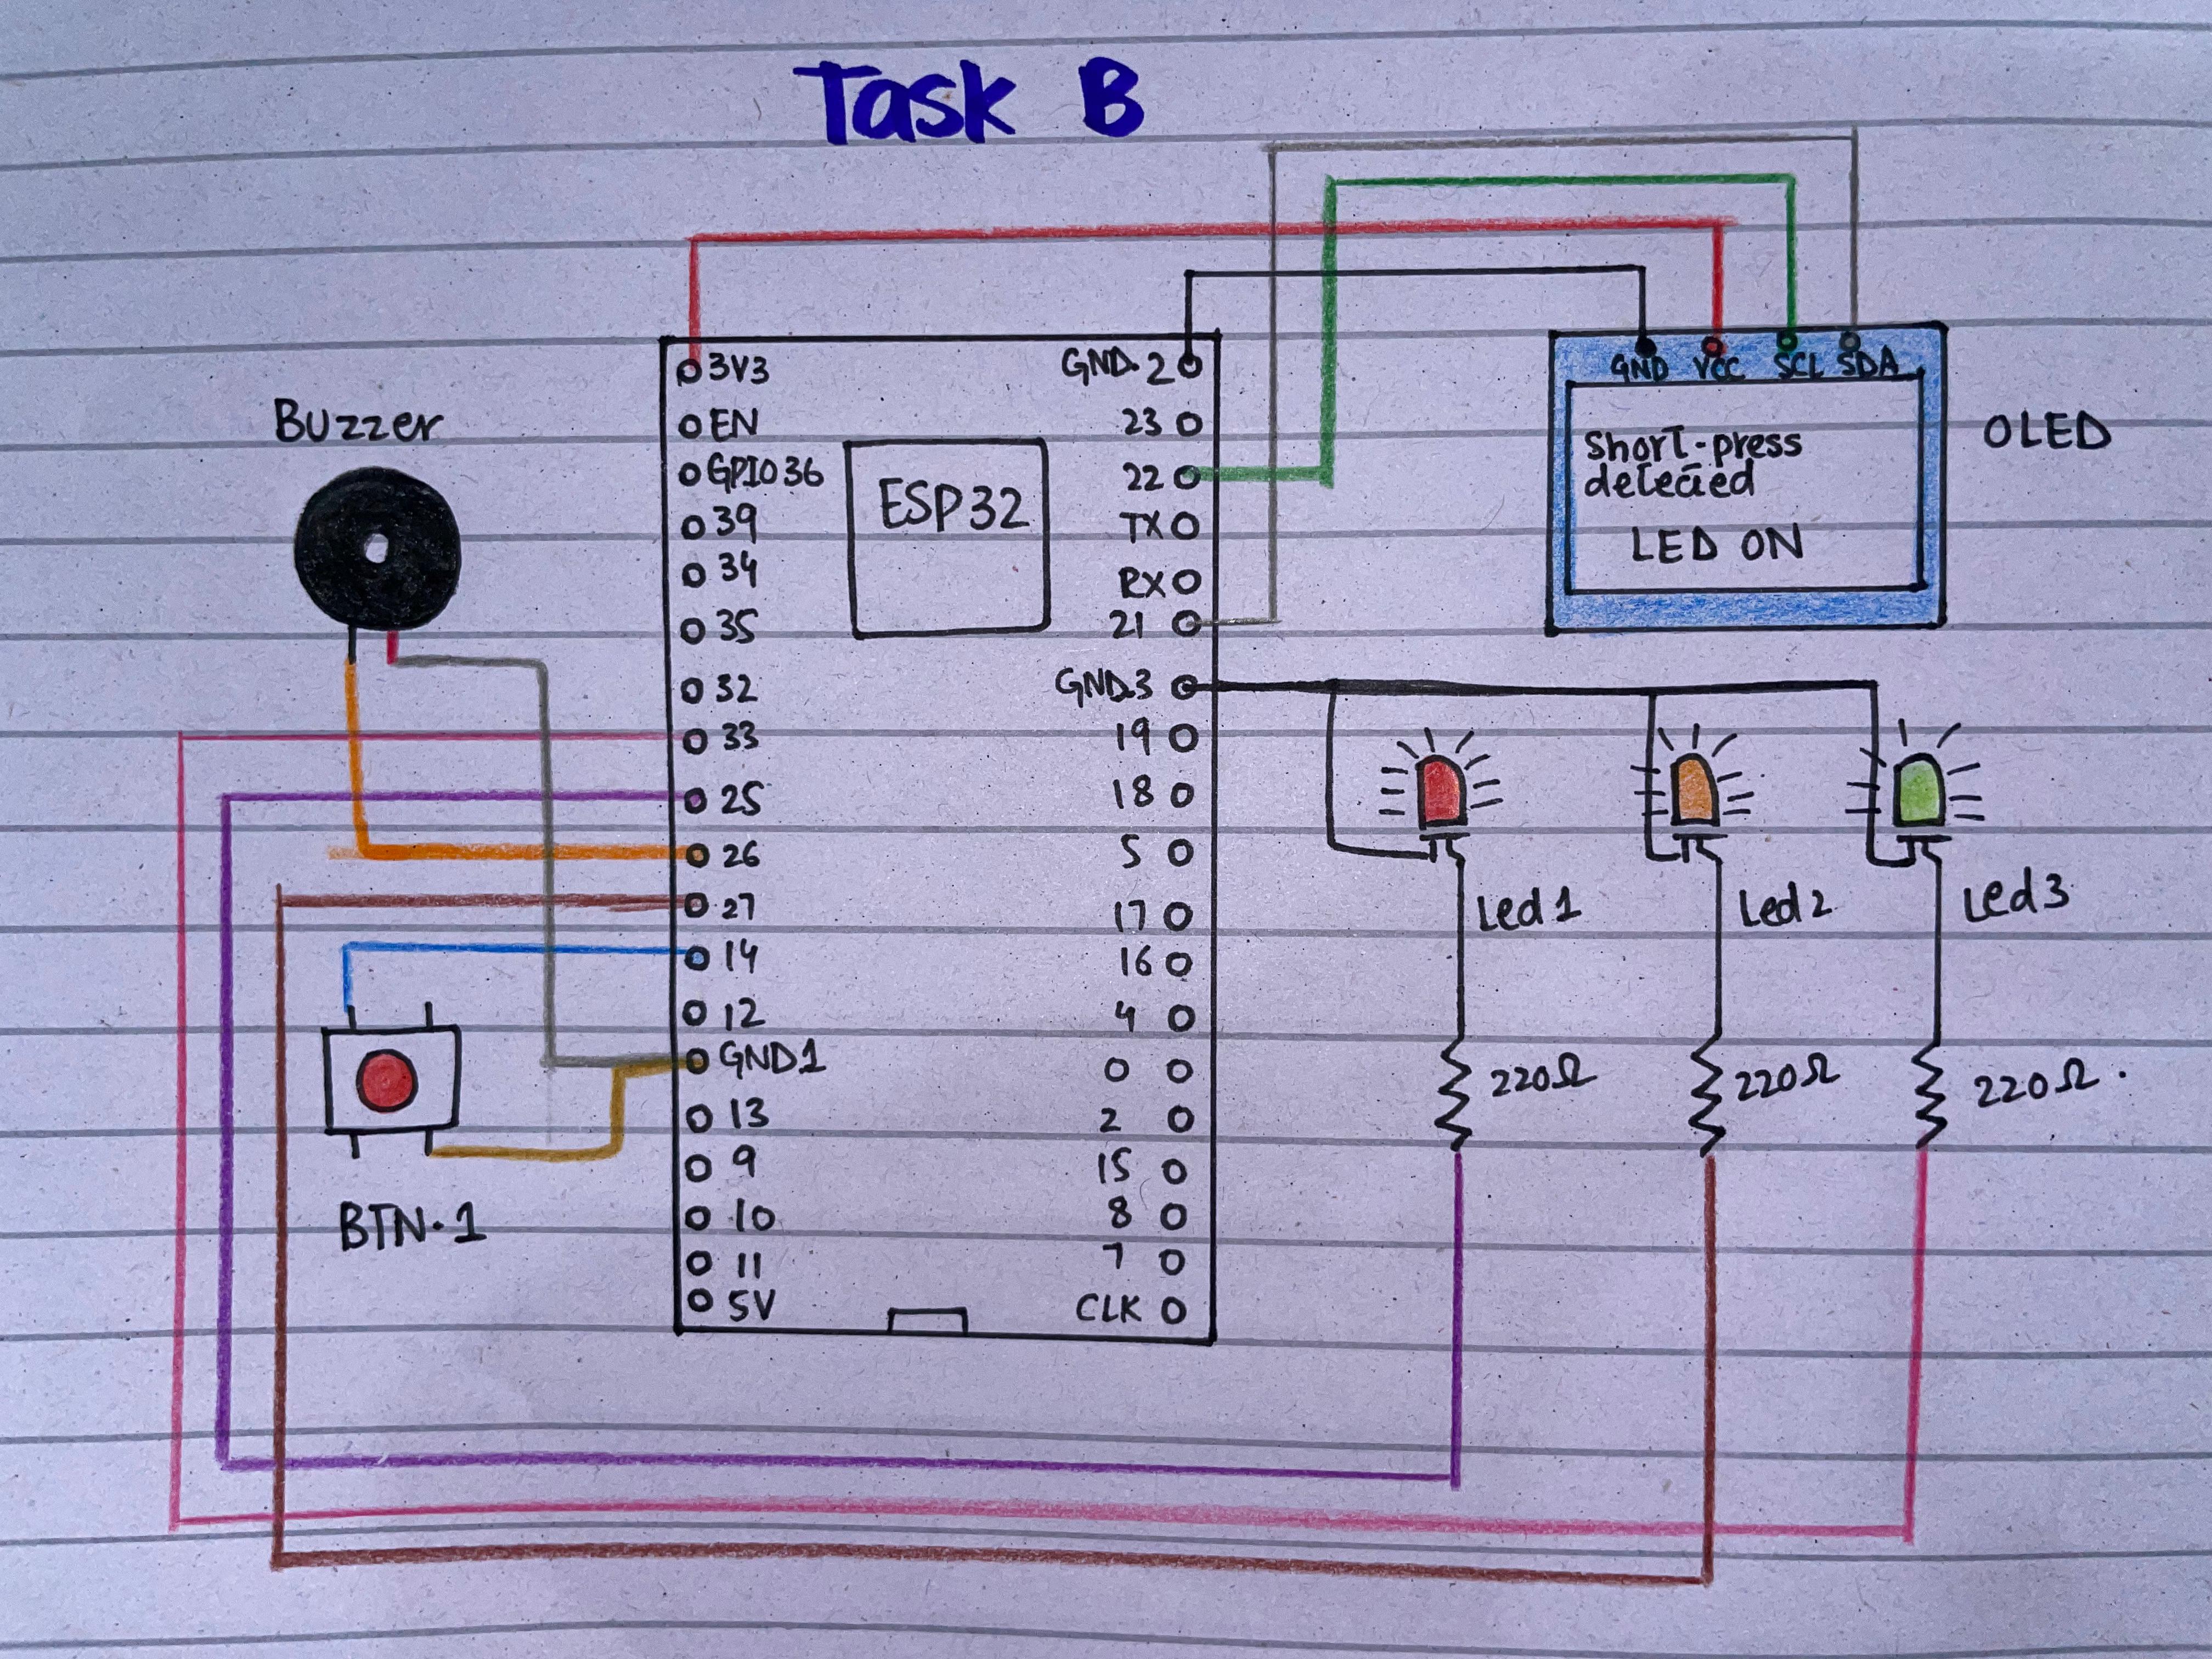 Task B
Buzzer
3V3
EN
GPIO36
39
34
35
32
33
25
26
27
14
12
GND1
13
9
10
11
5V
ESP32
GND.2
23
22
TX
RX
21
GND.3
19
18
5
17
16
4
0
2
15
8
7
CLK
BTN.1
GND VCC SCL SDA
Short-press
detected
LED ON
OLED
Led1
Led2
Led3
220Ω
220Ω
220Ω.